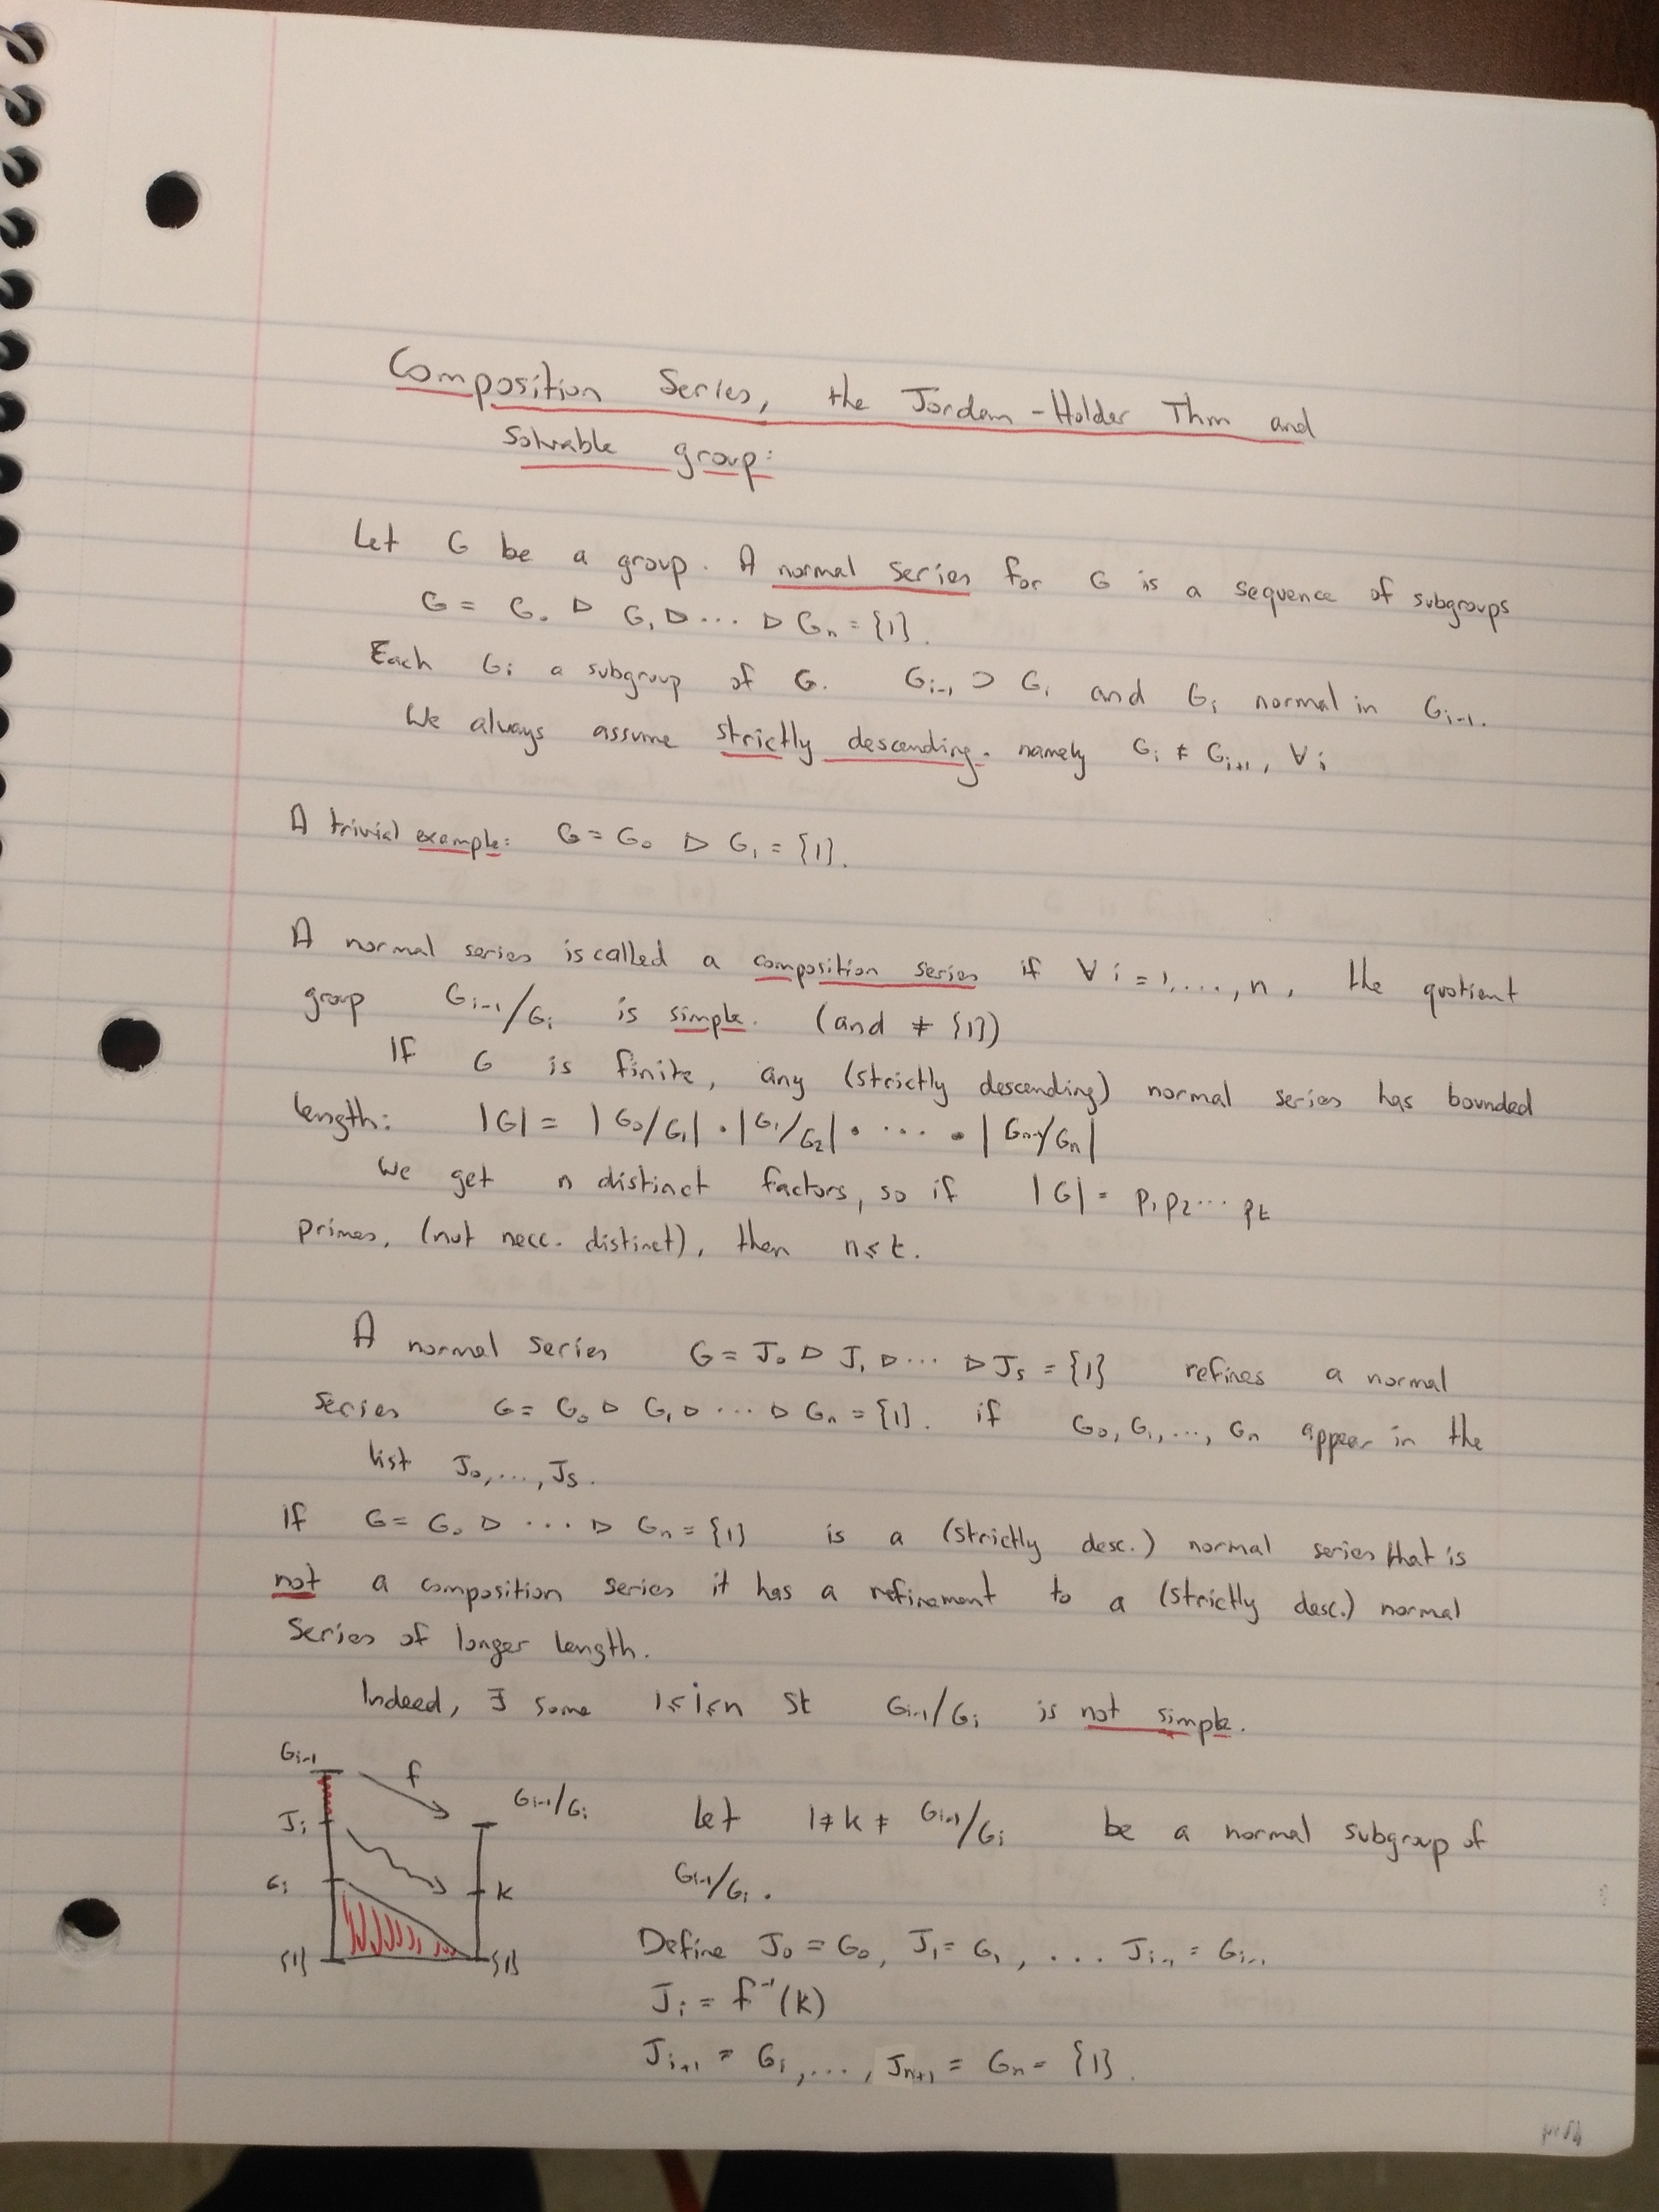 Composition Series, the Jordan-Holder Thm and
Solvable group:
Let G be a group. A normal series for G is a sequence of subgroups
G = G₀ ▷ G₁ ▷ ... ▷ Gₙ = {1}.
Each Gᵢ a subgroup of G. Gᵢ₋₁ ⊃ Gᵢ and Gᵢ normal in Gᵢ₋₁.
We always assume strictly descending. namely Gᵢ ≠ Gᵢ₊₁, ∀ i
A trivial example: G = G₀ ▷ G₁ = {1}.
A normal series is called a composition series if ∀ i = 1,...,n, the quotient
group Gᵢ₋₁/Gᵢ is simple. (and ≠ {1})
If G is finite, any (strictly descending) normal series has bounded
length: |G| = |G₀/G₁| · |G₁/G₂| · ... · |Gₙ₋₁/Gₙ|
We get n distinct factors, so if |G| = p₁p₂...pₜ
primes, (not necc. distinct), then n ≤ t.
A normal series G = J₀ ▷ J₁ ▷ ... ▷ Jₛ = {1} refines a normal
series G = G₀ ▷ G₁ ▷ ... ▷ Gₙ = {1}. if G₀, G₁, ..., Gₙ appear in the
list J₀,...,Jₛ.
If G = G₀ ▷ ... ▷ Gₙ = {1} is a (strictly desc.) normal series that is
not a composition series it has a refinement to a (strictly desc.) normal
series of longer length.
Indeed, ∃ some 1 ≤ i ≤ n st Gᵢ₋₁/Gᵢ is not simple.
Gᵢ₋₁ f Gᵢ₋₁/Gᵢ
Jᵢ
Gᵢ K
{1} {1}
Let 1 ≠ K ≠ Gᵢ₋₁/Gᵢ be a normal subgroup of
Gᵢ₋₁/Gᵢ.
Define J₀ = G₀, J₁ = G₁, ... Jᵢ₋₁ = Gᵢ₋₁
Jᵢ = f⁻¹(K)
Jᵢ₊₁ = Gᵢ, ..., Jₙ₊₁ = Gₙ = {1}.